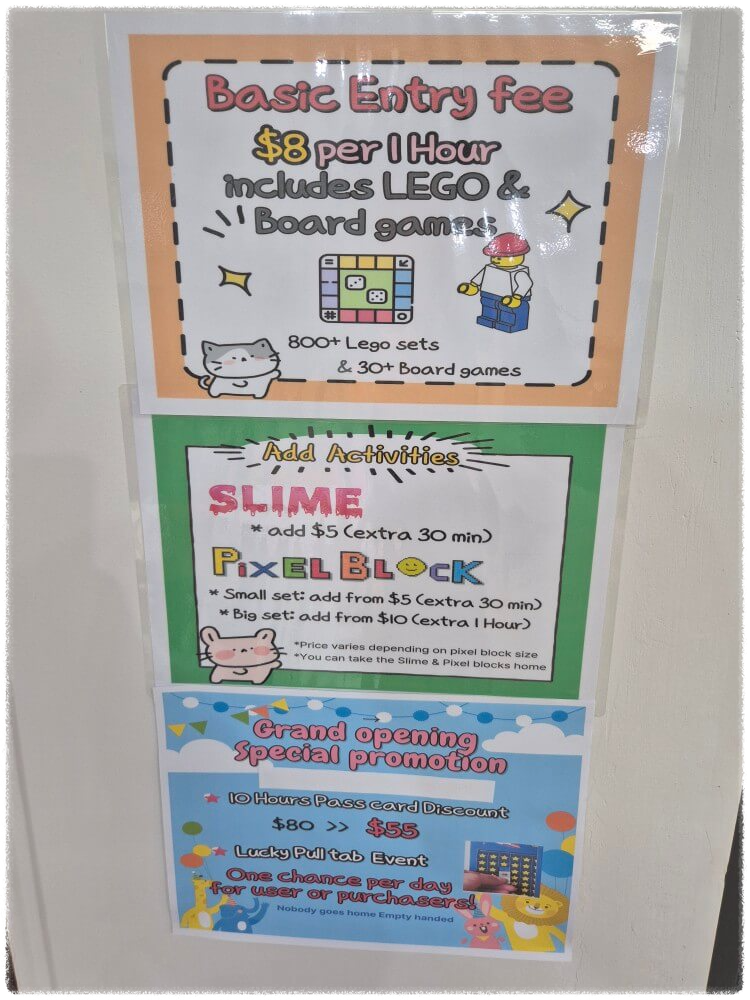 Basic Entry fee
$8 per 1 Hour
includes LEGO &
Board games
800+ Lego sets
& 30+ Board games
Add Activities
SLIME
* add $5 (extra 30 min)
PIXEL BLOCK
* Small set: add from $5 (extra 30 min)
* Big set: add from $10 (extra 1 Hour)
*Price varies depending on pixel block size
*You can take the Slime & Pixel blocks home
Grand opening
Special promotion
10 Hours Pass card Discount
$80 >> $55
Lucky Pull tab Event
One chance per day
for user or purchasers!
Nobody goes home Empty handed